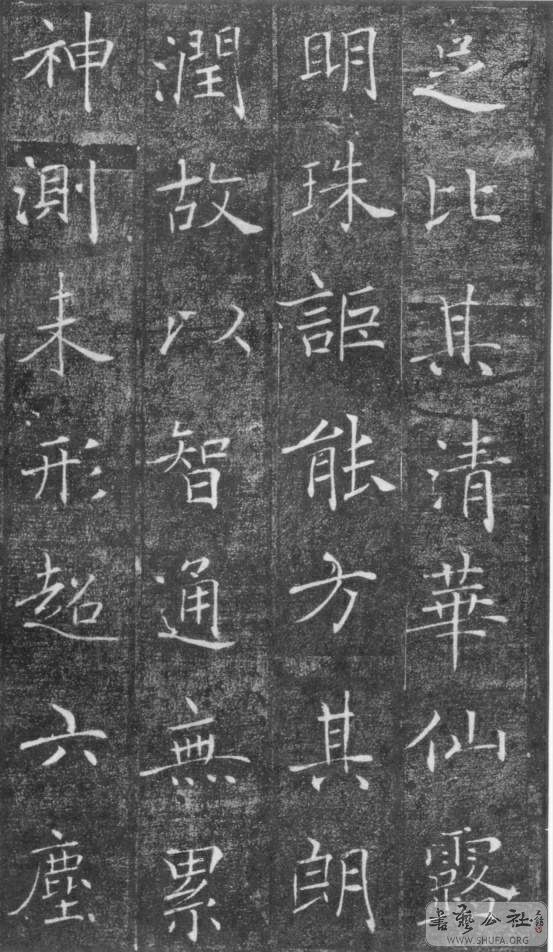 足比其清華仙露
明珠詎能方其朗
潤故以智通無累
神測未形超六塵
書藝公社
WWW.SHUFA.ORG